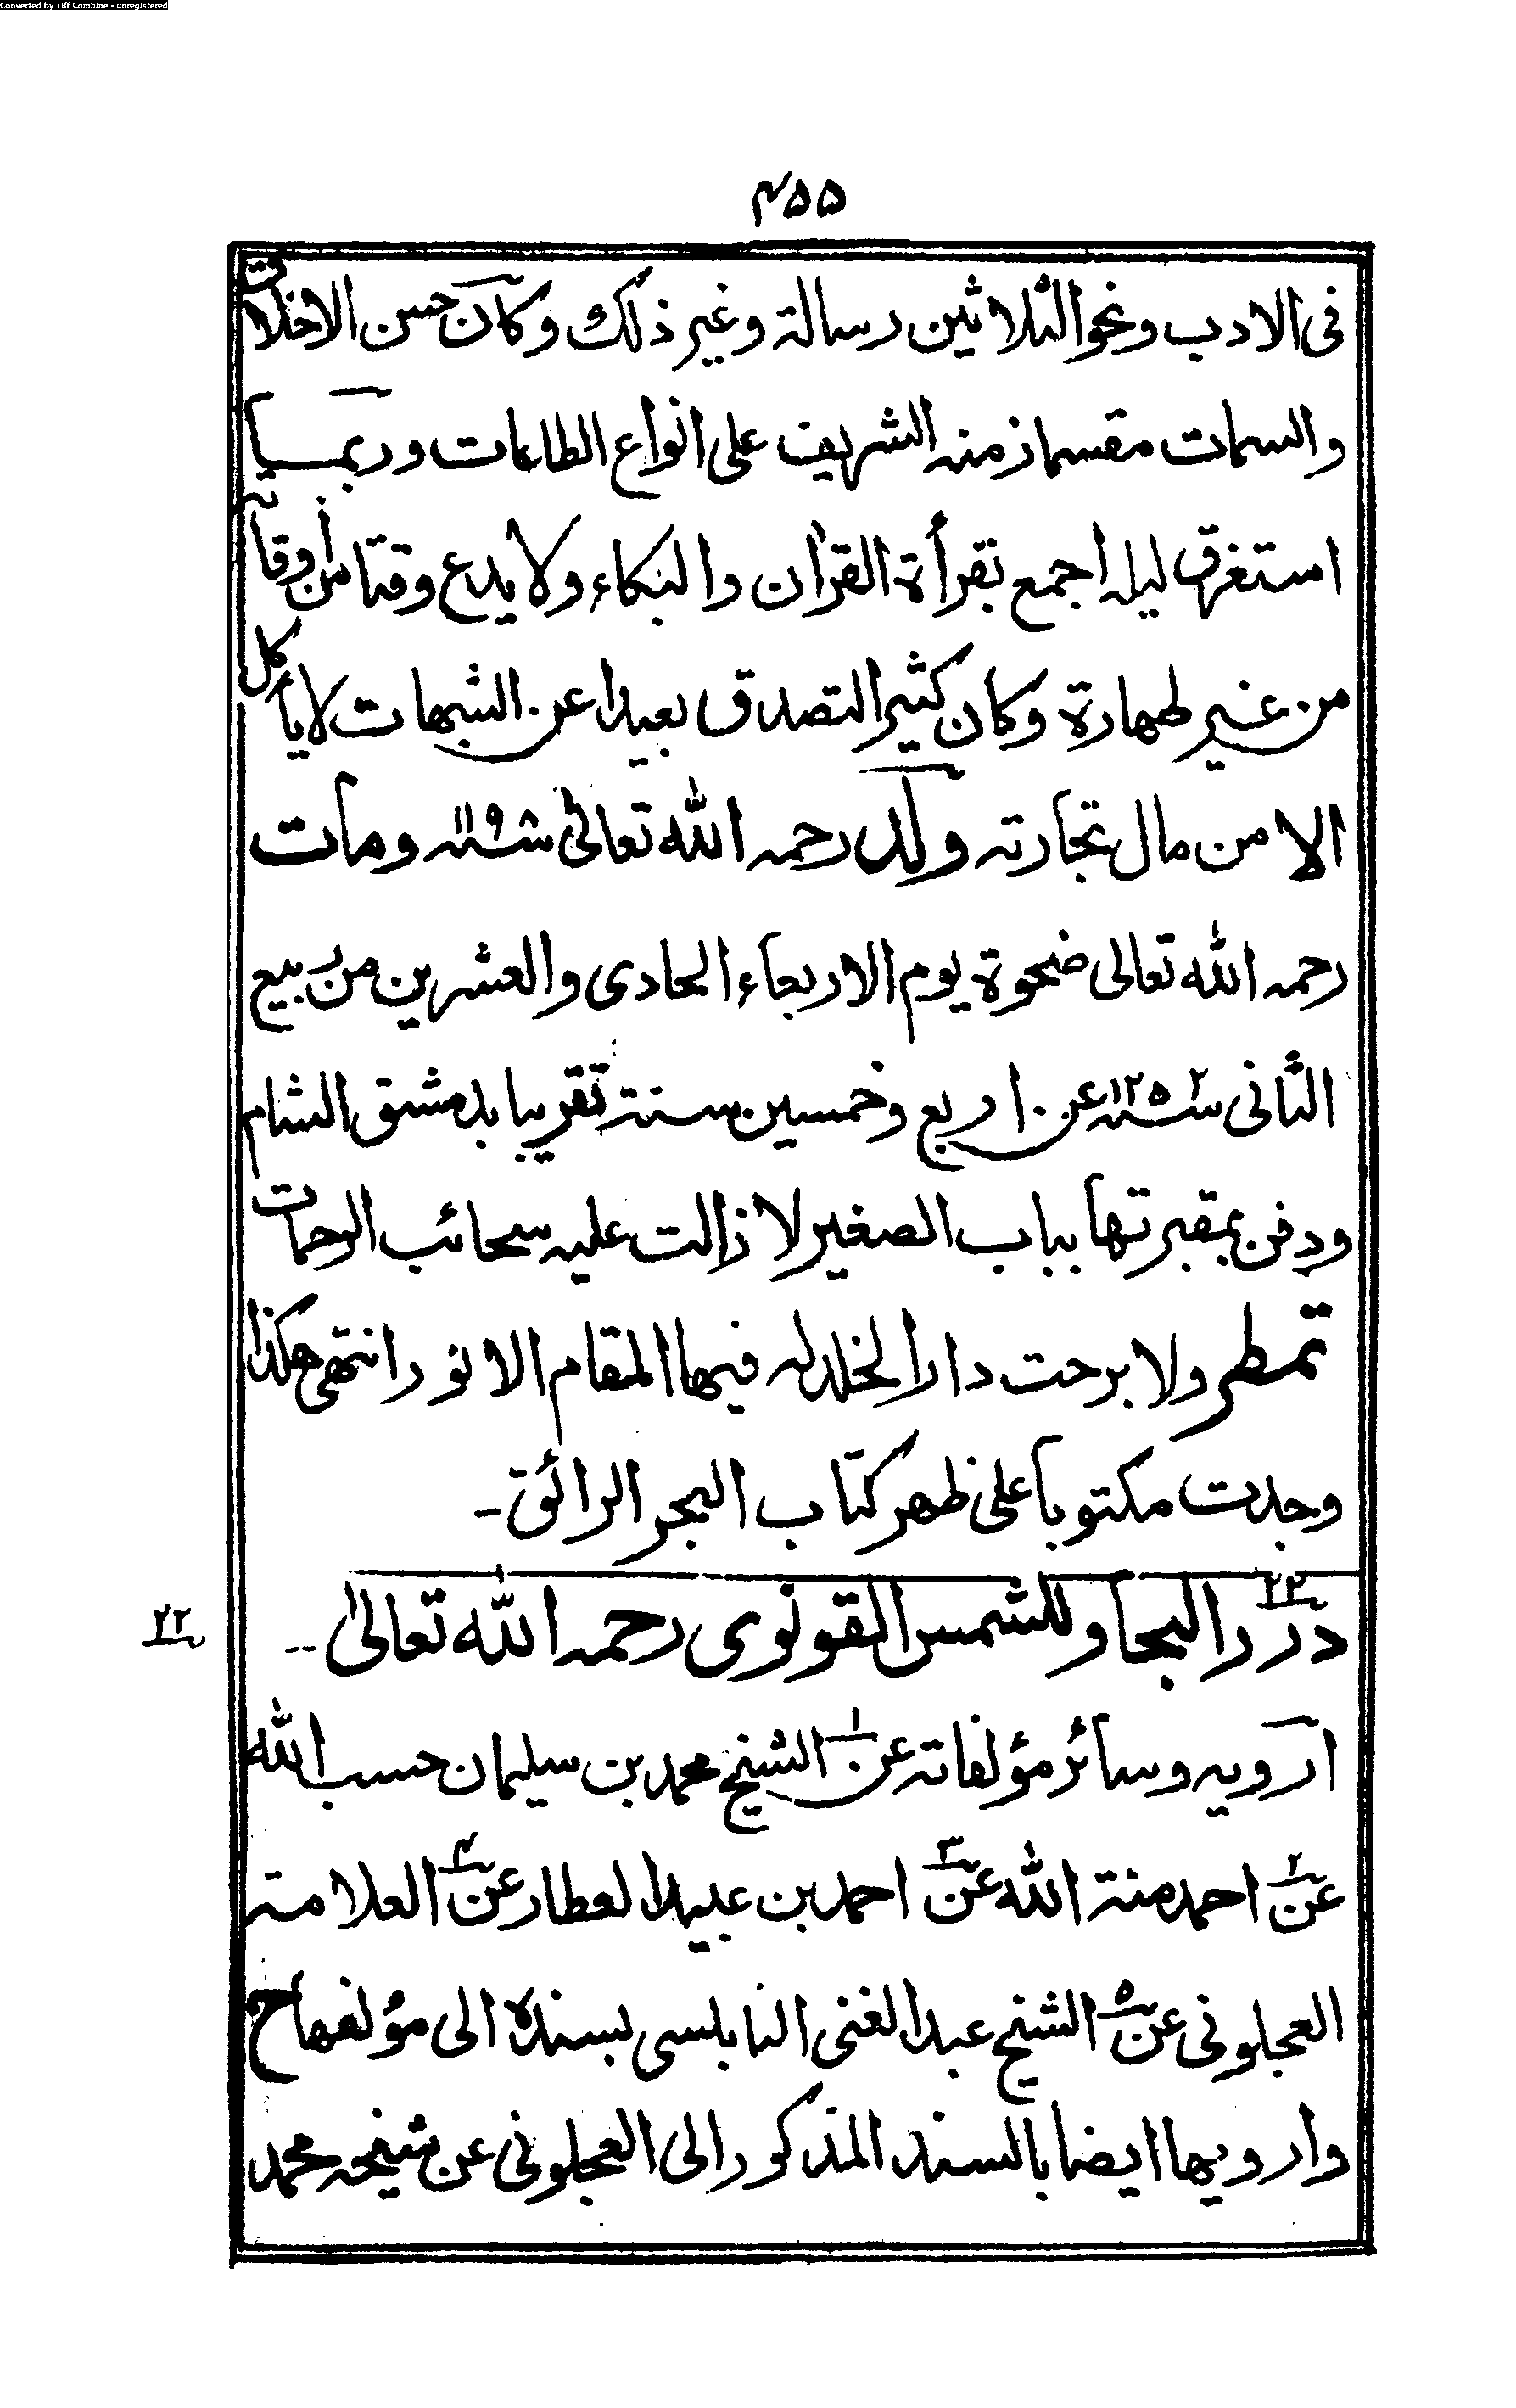 Converted by Tiff Combine - unregistered
۴۵۵
فی الادب ونحو الثلاثین رسالۃ وغیر ذلک وکان حسن الاخلاق
والسمات مقسما زمنہ الشریف علی انواع الطاعات وربمــا
استغرق لیلہ اجمع بقرأۃ القرآن والبکاء ولا یدع وقتا من اوقاتہ
من غیر طہارۃ وکان کثیر التصدق بعیدا عن الشبہات لا یأکل
الا من مال تجارتہ ولد رحمہ اللہ تعالیٰ ۱۱۹ ومات
رحمہ اللہ تعالی ضحوۃ یوم الاربعاء الحادی والعشرین من ربیع
الثانی ۱۲۵۲ عن اربع وخمسین سنۃ تقریبا بدمشق الشام
ودفن بمقبرتہا بباب الصغیر لا زالت علیہ سحائب الرحمات
تمطر ولا برحت دار الخلد لہ فیہا المقام الانور انتہی ہکذا
وجدت مکتوبا علی ظہر کتاب البحر الرائق ۔
۲۲
درر البحار للشمس القونوی رحمہ اللہ تعالیٰ ۔۔
۲۲
ارویہ وسائر مؤلفاتہ عن ۱ الشیخ محمد بن سلیمان حسب اللہ
عن ۲ احمد منۃ اللہ عن ۳ احمد بن عبید العطار عن ۴ العلامۃ
العجلونی عن ۵ الشیخ عبد الغنی النابلسی بسندہ الی مؤلفہا ح
وارویہا ایضا بالسند المذکور الی العجلونی عن شیخہ محمد